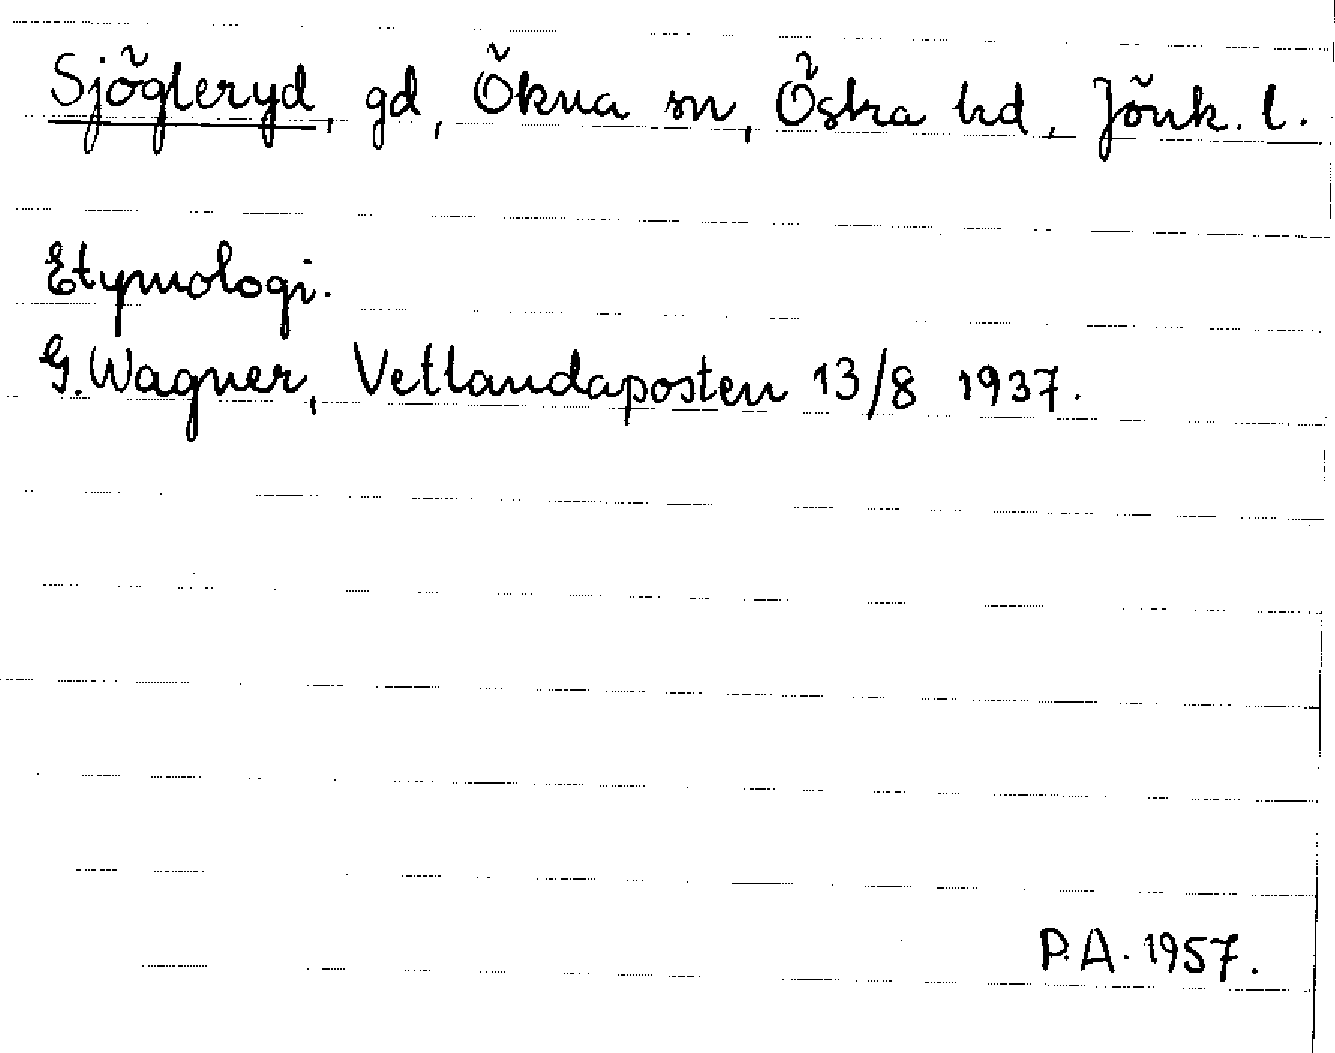 Sjögleryd, gd, Ökna sn, Östra hd, Jönk. l.
Etymologi.
G. Wagner, Vetlandaposten 13/8 1937.
P.A. 1957.